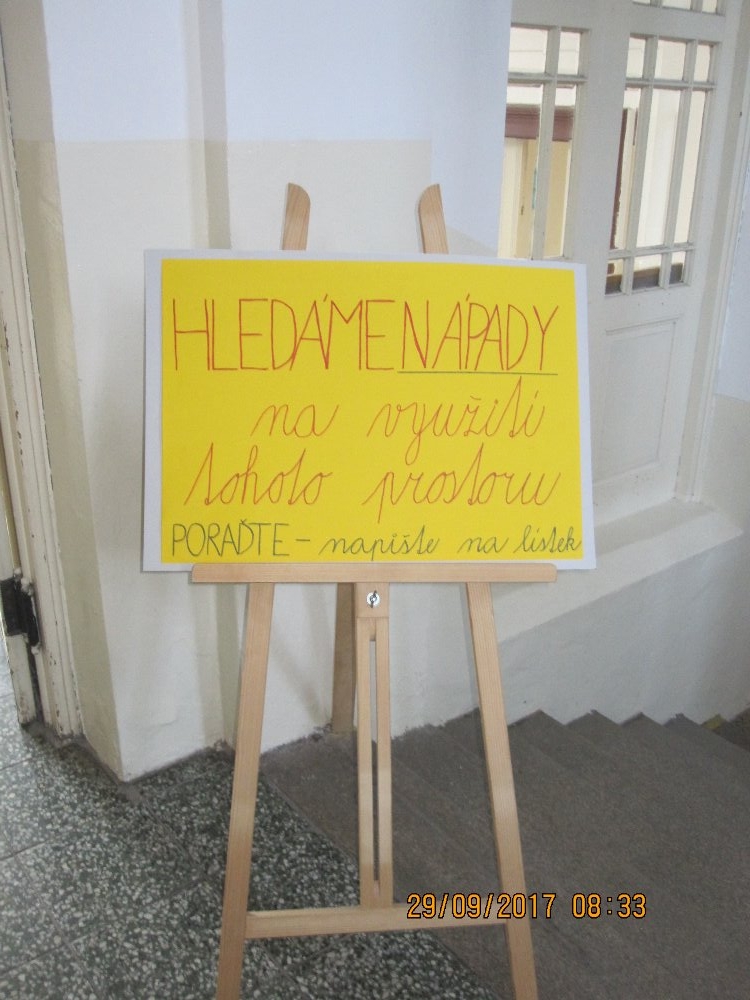 HLEDÁME NÁPADY
na využití
tohoto prostoru
PORAĎTE - napište na lístek
29/09/2017 08:33